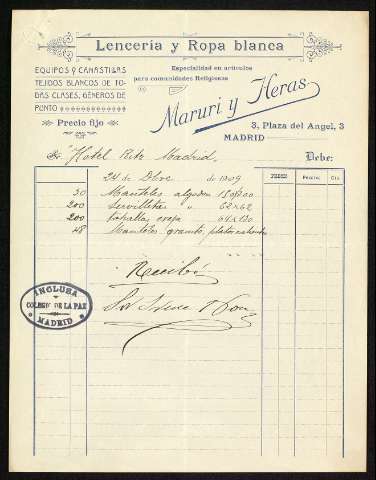 Lencería y Ropa blanca
EQUIPOS Y CANASTILLAS
TEJIDOS BLANCOS DE TO-
DAS CLASES, GÉNEROS DE
PUNTO
Precio fijo
Especialidad en artículos
para comunidades Religiosas
Maruri y Heras
3, Plaza del Angel, 3
MADRID
Hotel Ritz Madrid, Debe:
24 de Dbre de 1909
PIEZAS Pesetas Cts.
50 Manteles algodon
200 Servilletas " 62x62
200 64x120
48 Manteles granito,
Recibí
Sor
INCLUSA
Y
COLEGIO DE LA PAZ
MADRID